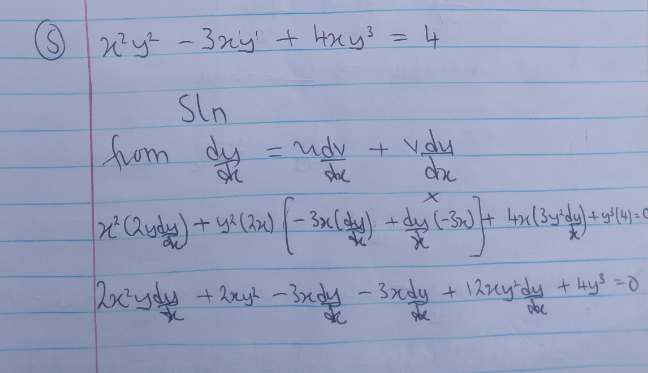 (5) x²y² - 3x¹y¹ + 4xy³ = 4
Sln
from dy/dx = u dv/dx + v du/dx
x²(2y dy/dx) + y²(2x) [-3x(dy/dx) + dy/x (-3x)] + 4x(3y² dy/x) + y³(4) = 0
2x²y dy/dx + 2xy² - 3x dy/dx - 3x dy/dx + 12xy² dy/dx + 4y³ = 0